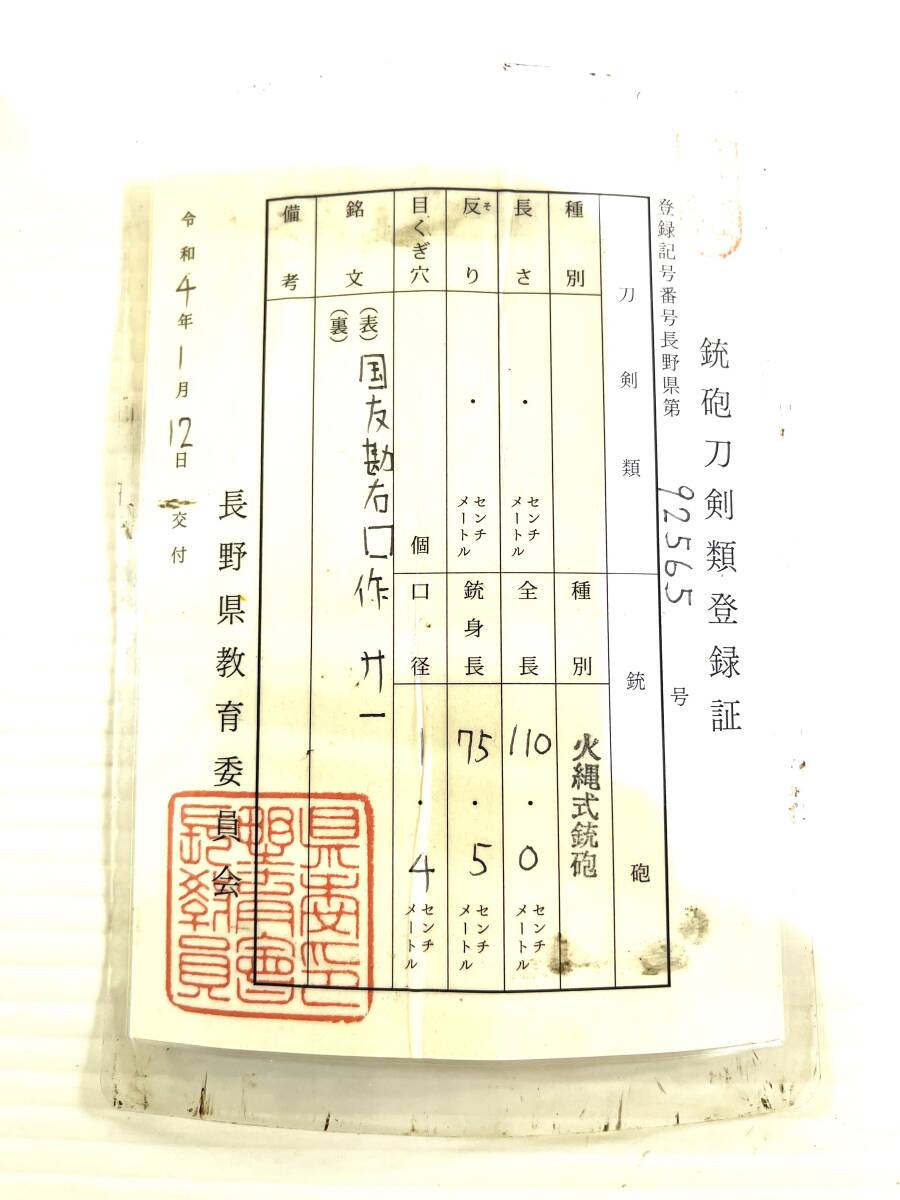 銃砲刀剣類登録証
登録記号番号長野県第 92565 号
刀剣類
種別
長さ ・ センチメートル
反り ・ センチメートル
そ
目くぎ穴 個
銃砲
種別 火縄式銃砲
全長 110・0 センチメートル
銃身長 75・5 センチメートル
口径 1・4 センチメートル
銘文 (表) 国友勘右口作 廾一
(裏)
備考
令和4年1月12日 交付
長野県教育委員会